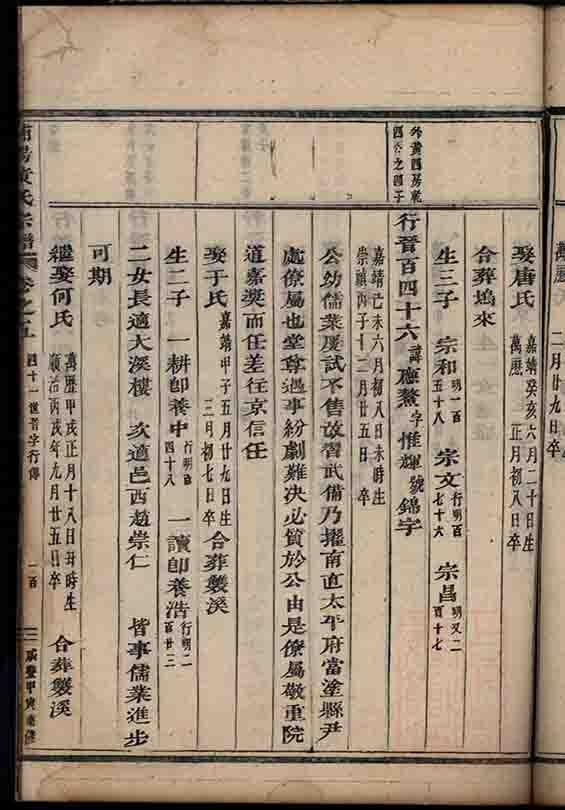 娶唐氏 嘉靖癸亥六月二十日生 萬歷 正月初八日卒
合葬塢來
生三子 宗和 明一百五十八 宗文 行明百七十六 宗昌 明又二百十七
外黃四房乾
四公之四子
行晉百四十六 諱應鰲字惟輝號錦宇
嘉靖己未六月初八日未時生
崇禎丙子十二月廿五日 卒
公幼儒業屢試不售改習武備乃擢南直太平府當塗縣尹
處僚屬也堂尊遇事紛劇難決必質於公由是僚屬敬重院
道嘉獎而任差往京信任
娶于氏 嘉靖甲子五月廿九日生 三月初七日卒 合葬雙溪
生二子 一耕即養中 四十八 一讀即養浩 行明二百廿三
二女長適大溪樓 次適邑西趙崇仁 皆事儒業進步
可期
繼娶何氏 萬歷甲戌正月十八日丑時生 順治丙戌年九月廿五日卒 合葬雙溪
黃氏宗譜 卷之五 四十一世晉字行傳 一百 咸豐甲寅重修
二月廿九日卒